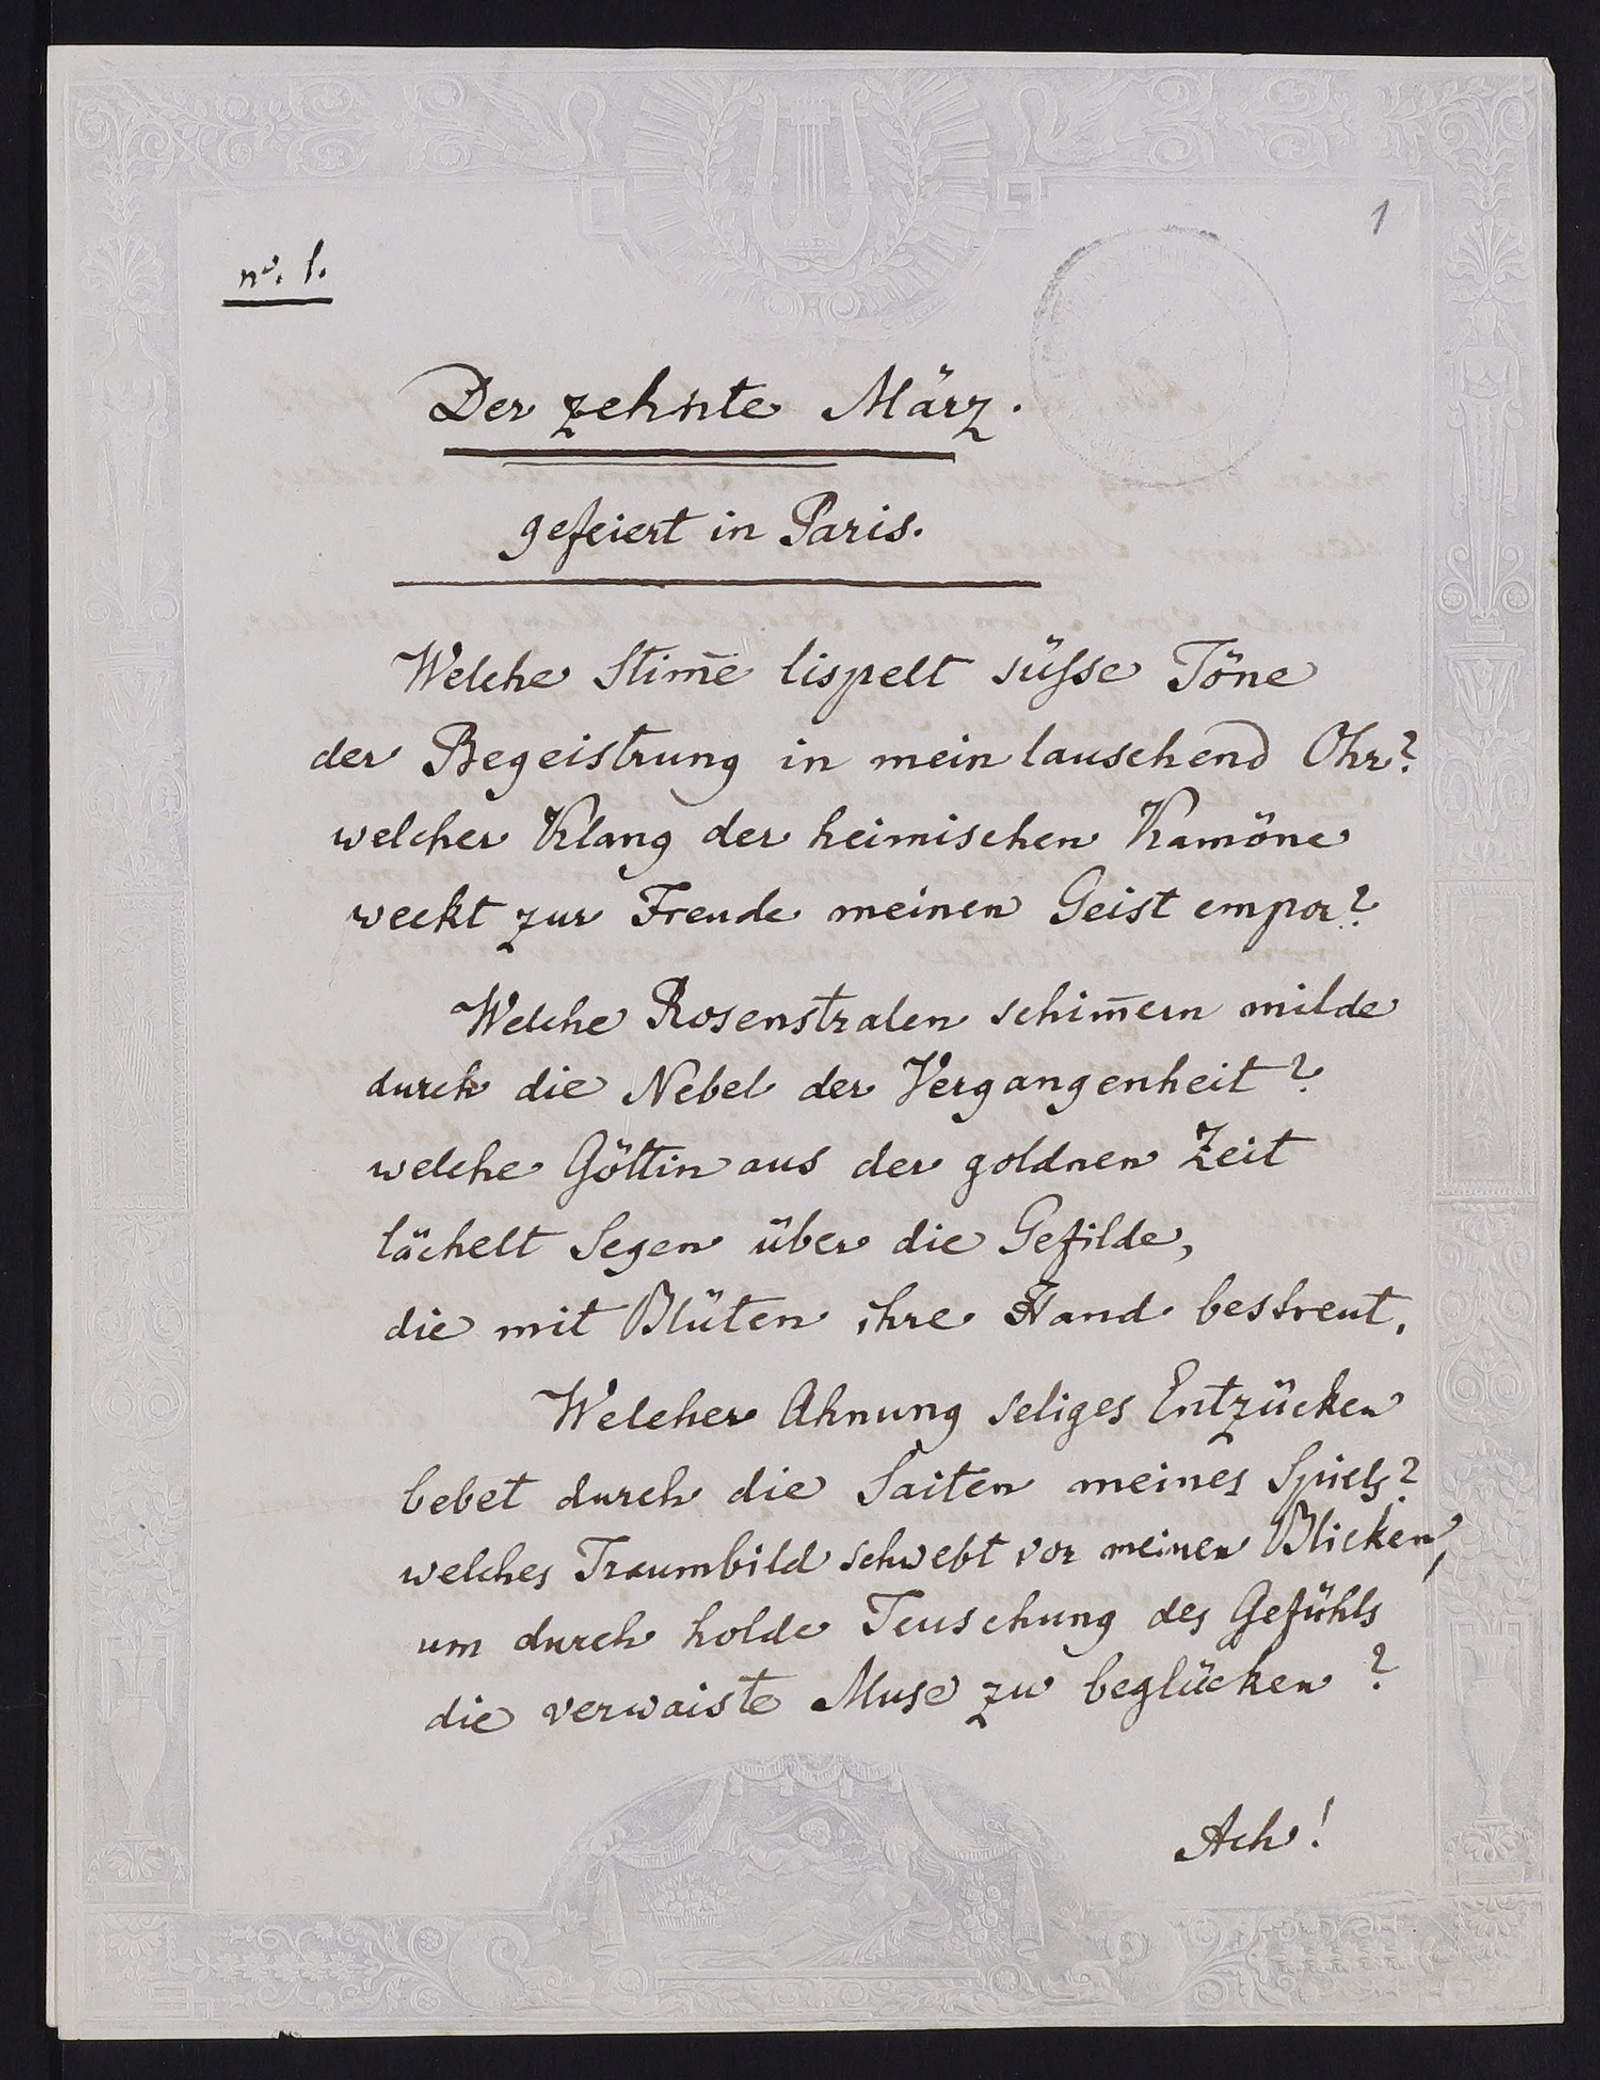 1
no. 1.
Der zehnte März.
gefeiert in Paris.
Welche Stim̄e lispelt süsse Töne
der Begeistrung in mein lauschend Ohr?
welcher Klang der heimischen Kamöne
weckt zur Freude meinen Geist empor?
Welche Rosenstralen schim̄ern milde
durch die Nebel der Vergangenheit?
welche Göttin aus der goldnen Zeit
lächelt Segen über die Gefilde,
die mit Blüten ihre Hand bestreut.
Welcher Ahnung seliges Entzücken
bebet durch die Saiten meines Spiels?
welches Traumbild schwebt vor meinen Blicken,
um durch holde Teuschung des Gefühls
die verwaiste Muse zu beglücken?
Ach!